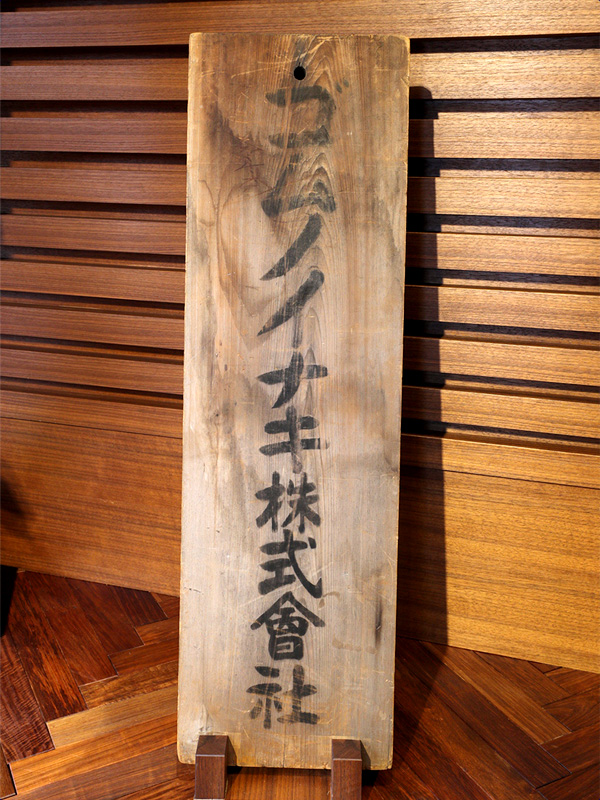 ゴムノイナキ株式會社